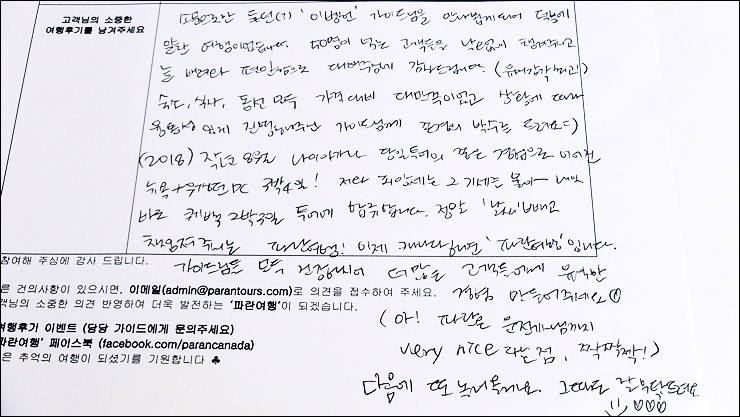 고객님의 소중한
여행후기를 남겨주세요
가이드님을 만나뵙게되어 덕분에
알찬 여행이었습니다. 40명이 넘는 고객들을 챙겨주시고
늘 배려와 편안함으로 감사드립니다. (유머감각 최고!)
숙소, 식사, 동선 모두 가격대비 대만족이었고 상황에 따라
융통성 있게 진행해주신 가이드님께 박수를 드려요=)
(2018) 작년 8월 나이아가라 단일투어의 좋은 경험으로 이어진
뉴욕+워싱턴DC 3박4일! 그 기세를 몰아~
바로 퀘벡 2박3일 투어에 합류합니다. 정말 '날씨' 빼고
책임져주시는 파란여행! 이제 캐나다하면 '파란여행'입니다.
가이드님들 모두 건강하시어 더많은 고객들에게 유익한
경험 만들어주세요
(아! 파란은 운전기사님까지
very nice 라는점, 짝짝짝!)
다음에 또 놀러올게요. 그때도 잘부탁드려요
참여해 주심에 감사 드립니다.
른 건의사항이 있으시면, 이메일(admin@parantours.com)로 의견을 접수하여 주세요.
객님의 소중한 의견 반영하여 더욱 발전하는 '파란여행'이 되겠습니다.
여행후기 이벤트 (담당 가이드에게 문의주세요)
파란여행' 페이스북 (facebook.com/parancanada)
은 추억의 여행이 되셨기를 기원합니다 ♣